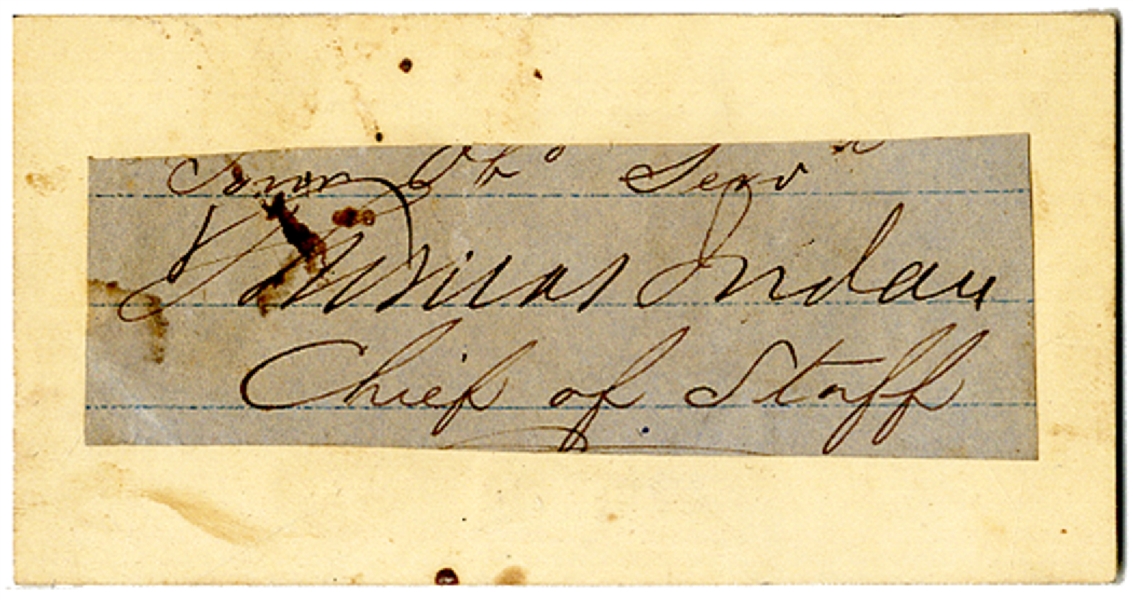 Your Obt Servt
Thomas Jordan
Chief of Staff